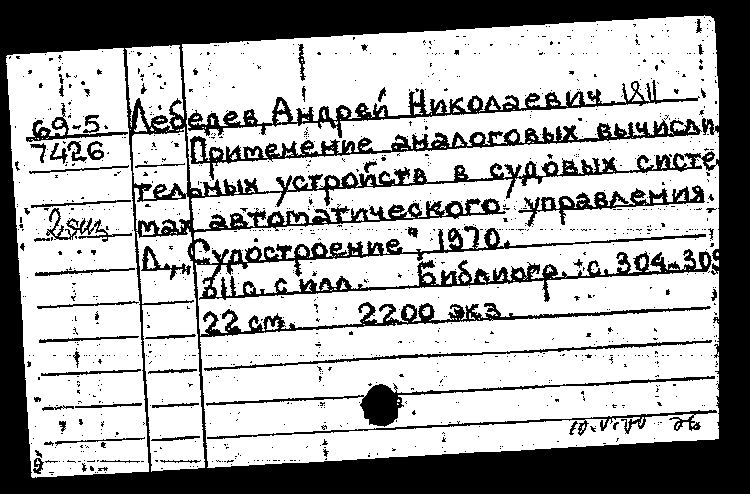 69-5
7426
2 экз.
Лебедев, Андрей Николаевич
Применение аналоговых вычисли
тельных устройств в судовых систе
мах автоматического управления.
Л., „Судостроение", 1970.
311 с. с илл. Библиогр.: с. 304-309
22 см. 2200 экз.